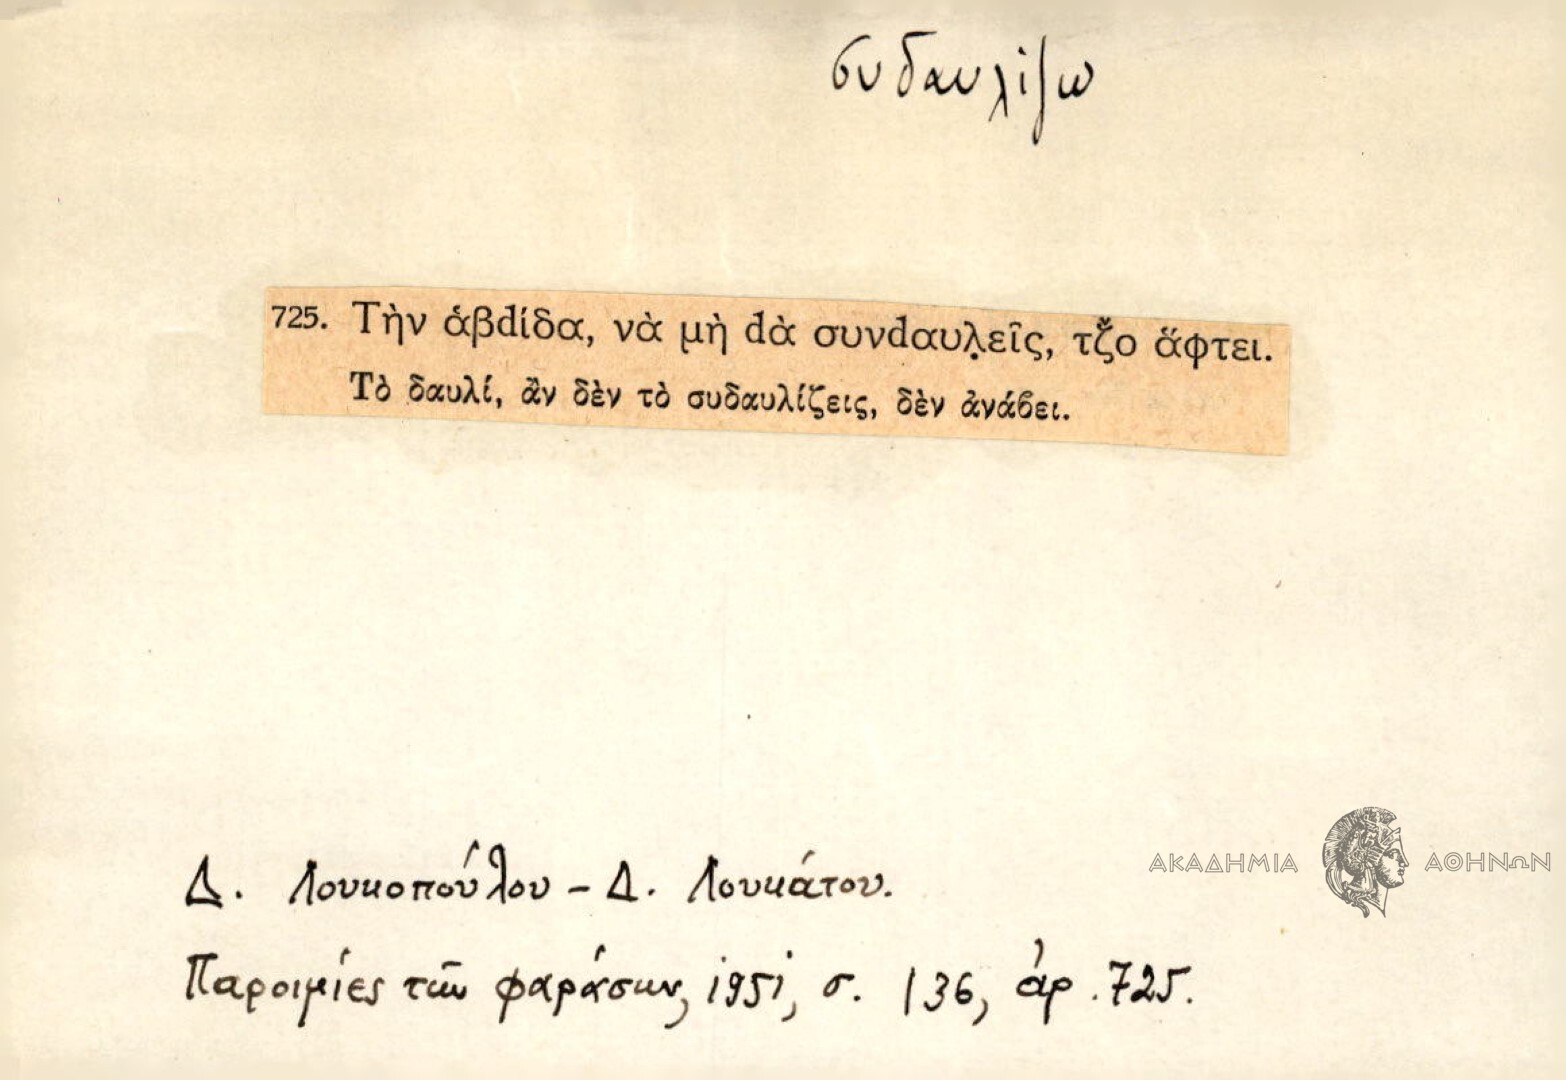 συδαυλίζω
725. Τὴν ἁβdίδα, νὰ μὴ dὰ συνdαυλ̣εῖς, τζ̌ο ἅφτει.
Τὸ δαυλί, ἂν δὲν τὸ συδαυλίζεις, δὲν ἀνάβει.
Δ. Λουκοπούλου – Δ. Λουκάτου.
Παροιμίες τῶν Φαράσων, 1951, σ. 136, ἀρ. 725.
ΑΚΑΔΗΜΙΑ ΑΘΗΝΩΝ